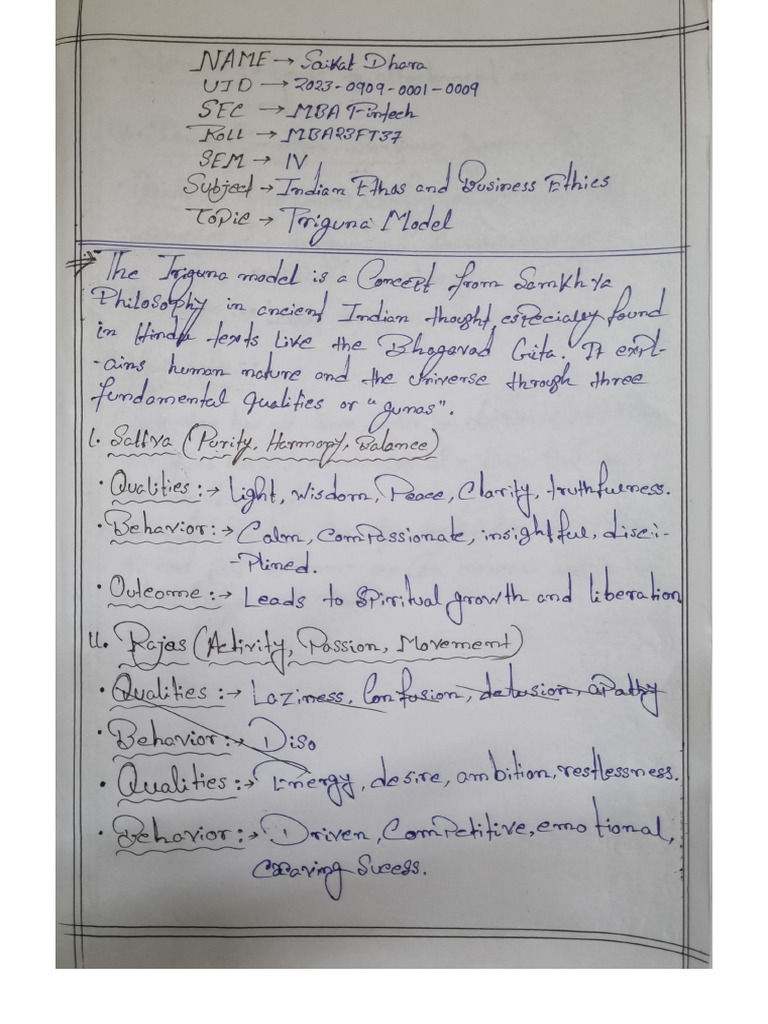 NAME → Saikat Dhara
UID → 2023-0909-0001-0009
SEC → MBA Fintech
ROLL → MBA23FT37
SEM → IV
Subject → Indian Ethos and Business Ethics
Topic → Triguna Model
The Triguna model is a Concept from Samkhya
Philosophy in ancient Indian thought, especially found
in Hindu texts Like the Bhagavad Gita. It expl-
-ains human nature and the universe through three
fundamental qualities or "gunas".
I. Sattva (Purity, Harmony, Balance)
• Qualities :→ Light, wisdom, Peace, Clarity, truthfulness.
• Behavior :→ Calm, compassionate, insightful, disci-
-plined.
• Outcome :→ Leads to spiritual growth and liberation
II. Rajas (Activity, Passion, Movement)
• Qualities :→ Laziness, Confusion, delusion, apathy
• Behavior :→ Diso
• Qualities :→ Energy, desire, ambition, restlessness.
• Behavior :→ Driven, Competitive, emotional,
Craving Sucess.